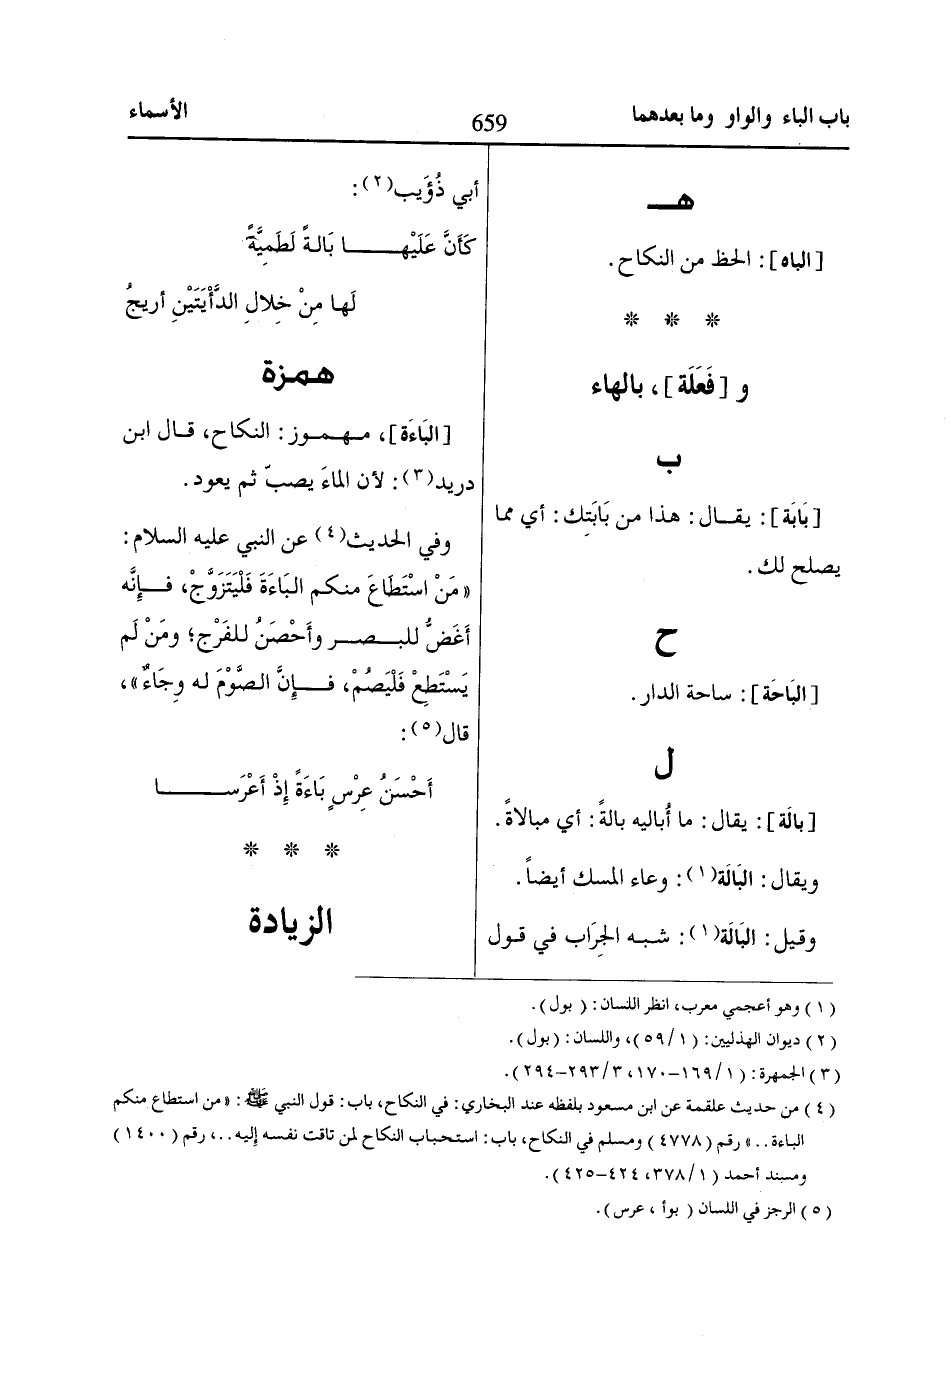 باب الباء والواو وما بعدهما
659
الأسماء
هـ
[الباه]: الحظ من النكاح.
* * *
و [فَعَلَة]، بالهاء
ب
[بَابَة]: يقال: هذا من بَابَتِك: أي مما
يصلح لك.
ح
[البَاحَة]: ساحة الدار.
ل
[بالَة]: يقال: ما أُباليه بالةً: أي مبالاةً.
ويقال: البَالَة(١): وعاء المسك أيضاً.
وقيل: البَالَة(١): شبه الجِرَاب في قول
أبي ذُؤَيب(٢):
كَأَنَّ عَلَيْهـا بَالةً لَطَمِيَّةً
لَها مِنْ خِلالِ الدَّأْيَتَيْنِ أريجُ
همزة
[البَاءَة]، مهموز: النكاح، قال ابن
دريد(٣): لأن الماءَ يصبّ ثم يعود.
وفي الحديث(٤) عن النبي عليه السلام:
«مَنْ اسْتَطَاعَ منكم البَاءَةَ فَلْيَتَزَوَّجْ، فإنَّه
أَغَضُّ للبصر وأَحْصَنُ للفَرْج؛ ومَنْ لَم
يَسْتَطِعْ فَلْيَصُمْ، فإنَّ الصَّوْمَ له وِجَاءٌ»،
قال(٥):
أَحْسَنُ عِرْسٍ بَاءَةً إذْ أَعْرَسا
* * *
الزيادة
(١) وهو أعجمي معرب، انظر اللسان: (بول).
(٢) ديوان الهذليين: (١/٥٩)، واللسان: (بول).
(٣) الجمهرة: (١/١٦٩–١٧٠، ٣/٢٩٣–٢٩٤).
(٤) من حديث علقمة عن ابن مسعود بلفظه عند البخاري: في النكاح، باب: قول النبي ﷺ: «من استطاع منكم
الباءة..» رقم (٤٧٧٨) ومسلم في النكاح، باب: استحباب النكاح لمن تاقت نفسه إليه..، رقم (١٤٠٠)
ومسند أحمد (١/٣٧٨، ٤٢٤–٤٢٥).
(٥) الرجز في اللسان (بوأ، عرس).